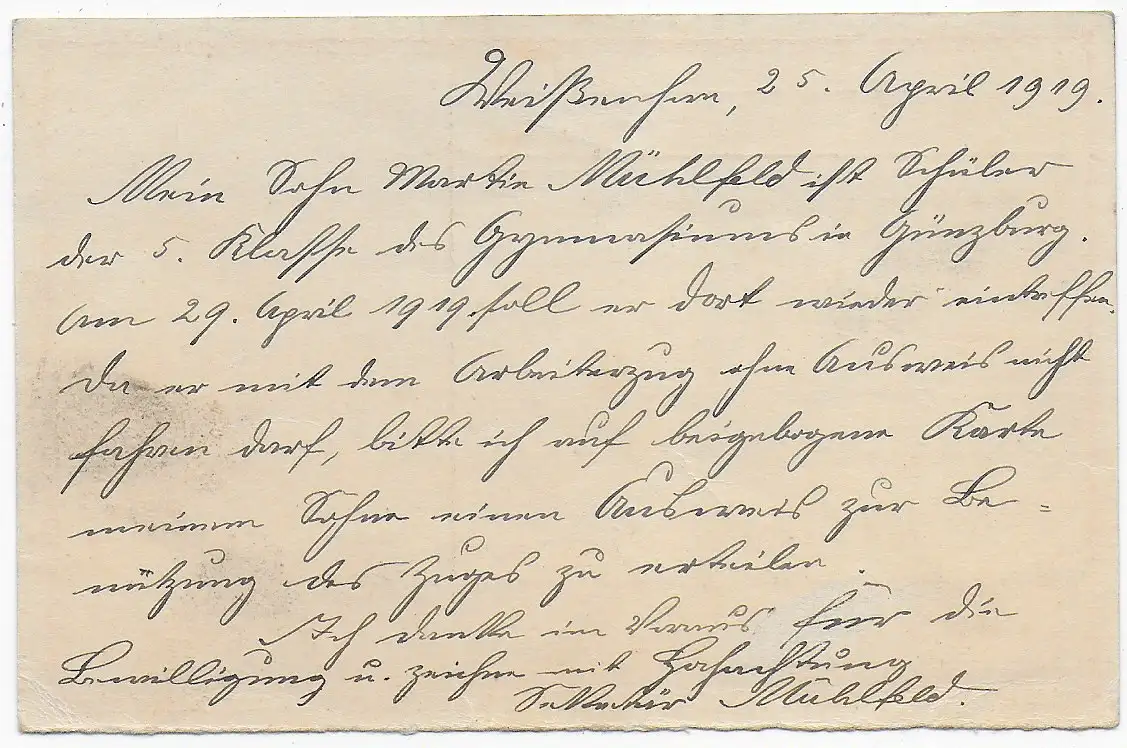 Weißenhorn, 25. April 1919.
Mein Sohn Martin Mühlfeld ist Schüler
der 5. Klasse des Gymnasiums in Günzburg.
Am 29. April 1919 soll er dort wieder eintreffen.
Da er mit dem Arbeiterzug ohne Ausweis nicht
fahren darf, bitte ich auf beigebogene Karte
meinem Sohne einen Ausweis zur Be=
nützung des Zuges zu erteilen.
Ich danke im Voraus für die
Bewilligung u. zeichne mit Hochachtung
Sekretär Mühlfeld.